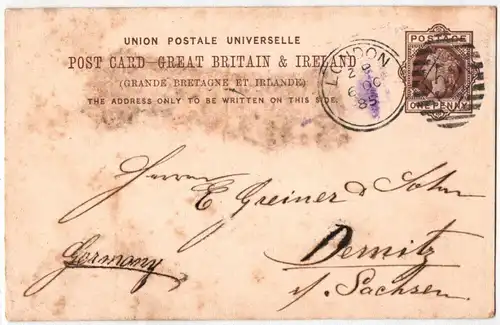 UNION POSTALE UNIVERSELLE
POST CARD-GREAT BRITAIN & IRELAND
(GRANDE BRETAGNE ET IRLANDE)
THE ADDRESS ONLY TO BE WRITTEN ON THIS SIDE.
LONDON
POSTAGE
ONE PENNY
Herren
E Greiner & Sohn
Demitz
Germany
i/ Sachsen